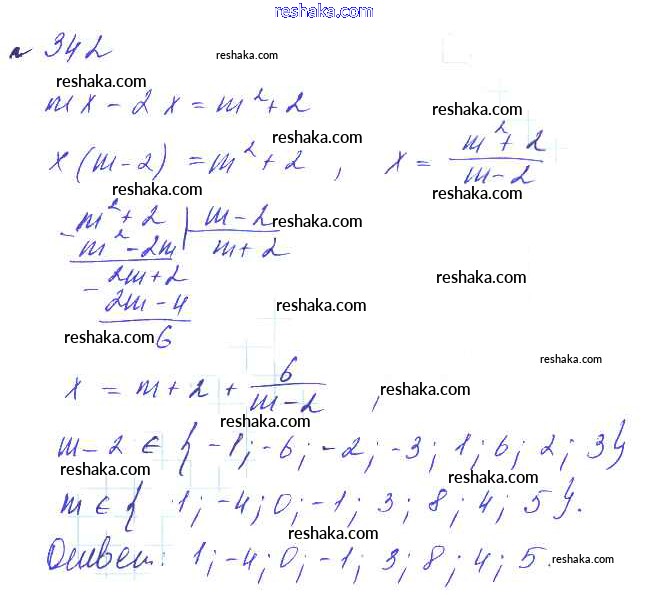 www.reshaka.com
№ 342
reshaka.com
reshaka.com
mx - 2x = m² + 2
reshaka.com
reshaka.com
x(m-2) = m² + 2 , x = (m² + 2)/(m - 2)
reshaka.com
reshaka.com
m² + 2 | m - 2
reshaka.com
- m² - 2m | m + 2
2m + 2
reshaka.com
- 2m - 4
reshaka.com
reshaka.com 6
reshaka.com
x = m + 2 + 6/(m - 2) ,
reshaka.com
reshaka.com
m - 2 ∈ { -1; -6; -2; -3; 1; 6; 2; 3}
reshaka.com
reshaka.com
m ∈ { 1; -4; 0; -1; 3; 8; 4; 5}.
reshaka.com
Ответ: 1; -4; 0; -1; 3; 8; 4; 5.
reshaka.com
reshaka.com